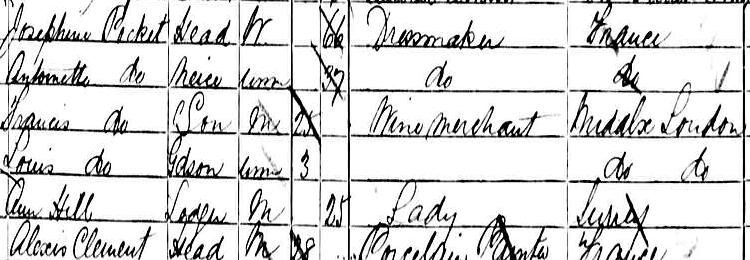 Josephine Pocket Head W 66 Dressmaker France
Antoinette do Neice unm 37 do do
Francis do Son M 25 Wine Merchant Middlsx London
Louis do Gdson unm 3 do do
Ann Hill Lodger M 25 Lady Surrey
Alexis Clement Head M 38 Porcelain France